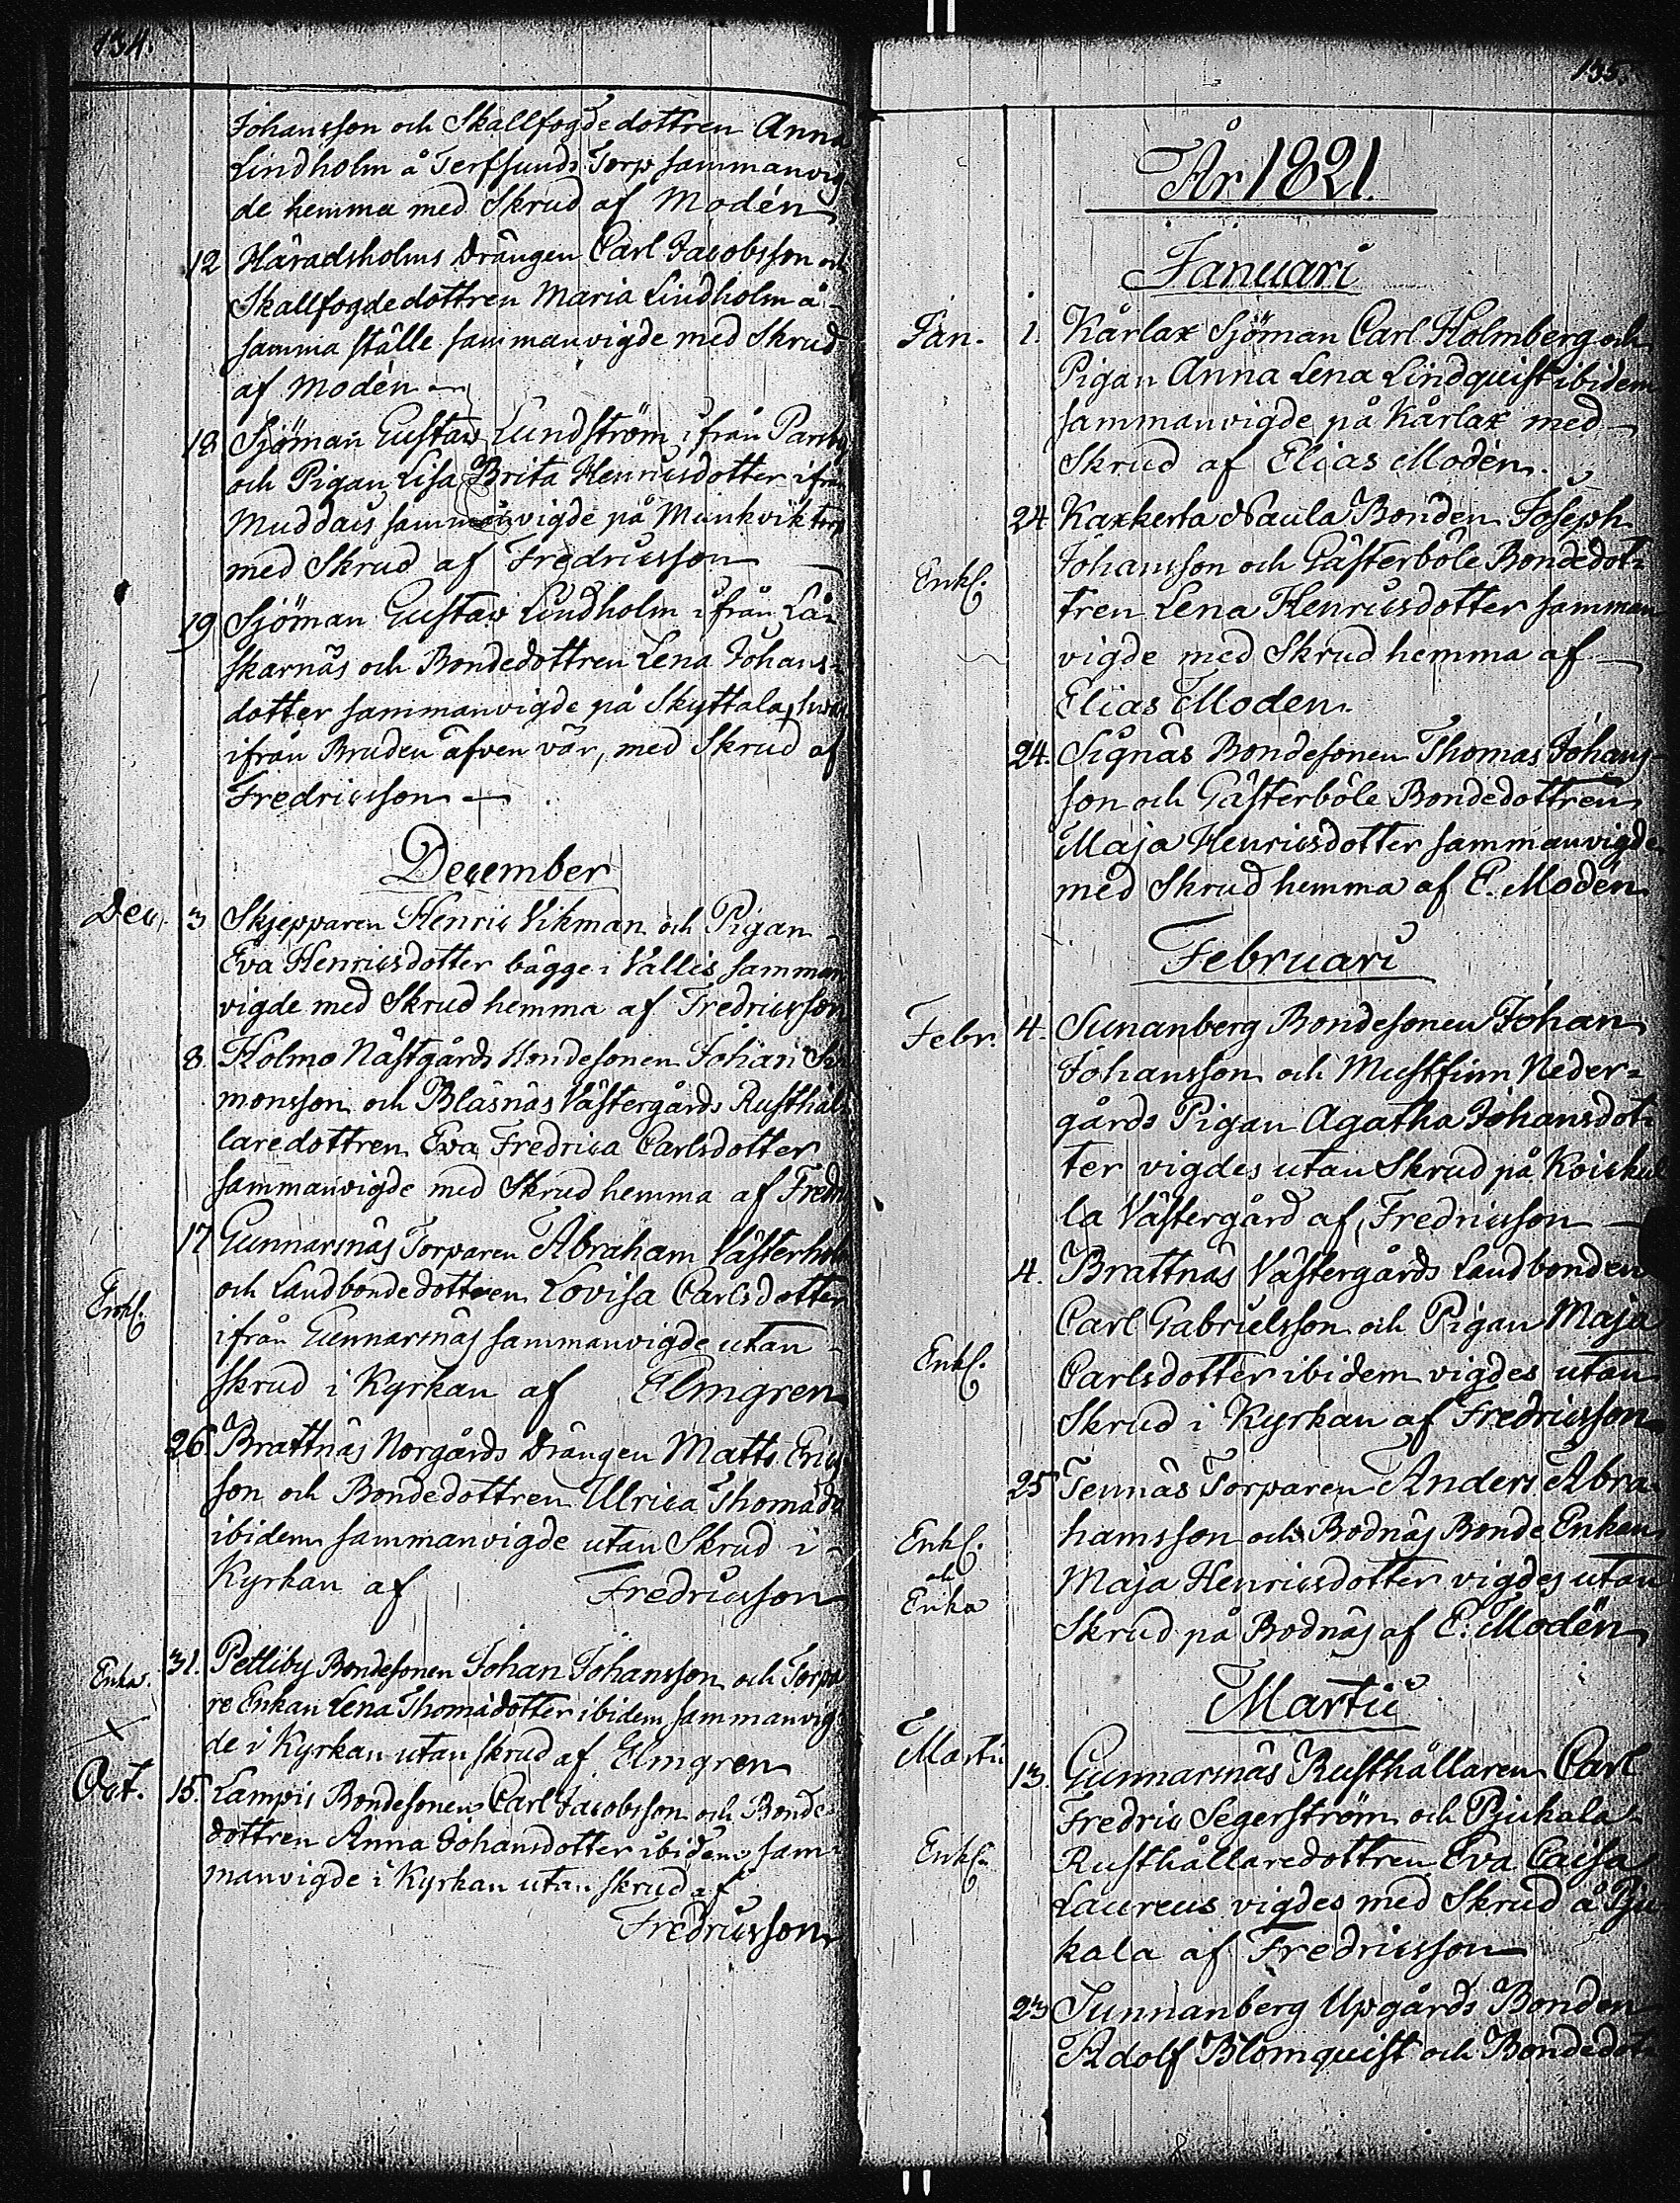 134.
Johansson och Skallfogdedottren Anna
Lindholm å Terfsunds Torp sammanvig
de hemma med Skrud af Modén
12 Häradsholms Drängen Carl Jacobsson och
Skallfogdedottren Maria Lindholm å
samma ställe sammanvigde med Skrud
af Modén
18 Sjöman Gustav Lundström ifrån Parsby
och Pigan Lisa Brita Henricsdotter ifrån
Muddais sammanvigde på Munkvik
med Skrud af Fredricsson
19 Sjöman Gustav Lindholm ifrån
skarnäs och Bondedottren Lena Johans-
dotter sammanvigde på Skyttala,
ifrån Bruden äfven vär, med Skrud af
Fredricsson
December
Dec. 3 Skjepparen Henric Vikman och Pigan
Eva Henricsdotter bägge i Vallis samman
vigde med Skrud hemma af Fredricsson
8. Holmo Nästgårds Bondesonen Johan Si
monsson och Bläsnäs Västergårds Rusthål-
laredottren Eva Fredrica Carlsdotter
sammanvigde med Skrud hemma af Fredr
17 Gunnarsnäs Torparen Abraham Västerholm
Enkl. och Landbondedottren Lovisa Carlsdotter
ifrån Gunnarsnäs sammanvigde utan
skrud i Kyrkan af Elmgren
26. Brattnäs Norgårds Drängen Matts Erics
son och Bondedottren Ulrica Thomasd
ibidem sammanvigde utan Skrud i
Kyrkan af Fredricsson
Enka. 31. Pettiby Bondesonen Johan Johansson och Torpa
re Enkan Lena Thomasdotter ibidem sammanvig
de i Kyrkan utan skrud af Elmgren
Oct. 15. Lampis Bondesonen Carl Jacobsson och Bonde
dottren Anna Johansdotter ibidem sam-
manvigde i Kyrkan utan skrud af
Fredricsson
135.
År 1821.
Januari
Jan. 1. Kårlax Sjöman Carl Holmberg och
Pigan Anna Lena Lindquist ibidem
sammanvigde på Kårlax med
Skrud af Elias Modén.
24 Kaxkerta Naula Bonden Joseph
Enkl. Johansson och Gästerböle Bondedot-
tren Lena Henricsdotter samman
vigde med Skrud hemma af
Elias Moden.
24. Signäs Bondesonen Thomas Johans-
son och Gästerböle Bondedottren
Maja Henricsdotter sammanvigde
med Skrud hemma af E. Modén
Februari
Febr. 4. Sunanberg Bondesonen Johan
Johansson och Mustfinn Neder-
gårds Pigan Agatha Johansdot-
ter vigdes utan Skrud på Koiskul
la Västergård af Fredricsson
4. Brattnäs Västergårds Landbonden
Carl Gabrielsson och Pigan Maja
Enkl. Carlsdotter ibidem vigdes utan
Skrud i Kyrkan af Fredricsson
25 Tennäs Torparen Anders Abra-
Enkl. hamsson och Bodnäs Bonde Enkan
och
Enka Maja Henricsdotter vigdes utan
Skrud på Bodnäs af E. Modén
Martii
Martii 13. Gunnarsnäs Rusthållaren Carl
Fredric Segerström och Pjukala
Enkl. Rusthållaredottren Eva Caisa
Laureus vigdes med Skrud å Pju
kala af Fredricsson
23 Sunnanberg Upgårds Bonden
Adolf Blomquist och Bondedot-